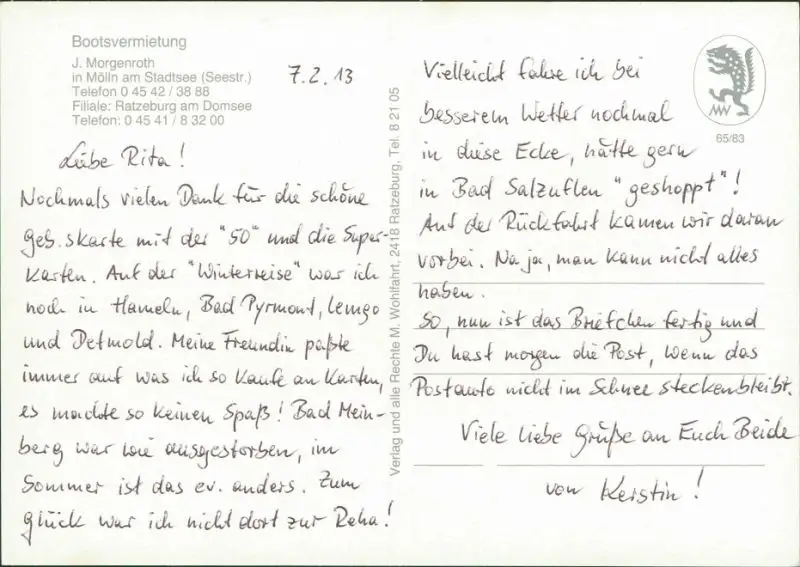 Bootsvermietung
J. Morgenroth
in Mölln am Stadtsee (Seestr.)
Telefon 0 45 42 / 38 88
Filiale: Ratzeburg am Domsee
Telefon: 0 45 41 / 8 32 00
7.2.13
Liebe Rita!
Nochmals vielen Dank für die schöne
Geb.skarte mit der "50" und die Super-
karten. Auf der "Winterreise" war ich
noch in Hameln, Bad Pyrmont, Lemgo
und Detmold. Meine Freundin paßte
immer auf was ich so kaufe an Karten,
es machte so keinen Spaß! Bad Mein-
berg war wie ausgestorben, im
Sommer ist das ev. anders. Zum
Glück war ich nicht dort zur Reha!
Verlag und alle Rechte M. Wohlfahrt, 2418 Ratzeburg, Tel. 8 21 05
MW
65/83
Vielleicht fahre ich bei
besserem Wetter nochmal
in diese Ecke, hätte gern
in Bad Salzuflen "geshoppt"!
Auf der Rückfahrt kamen wir daran
vorbei. Na ja, man kann nicht alles
haben.
So, nun ist das Briefchen fertig und
Du hast morgen die Post, wenn das
Postauto nicht im Schnee steckenbleibt.
Viele liebe Grüße an Euch Beide
von Kerstin!